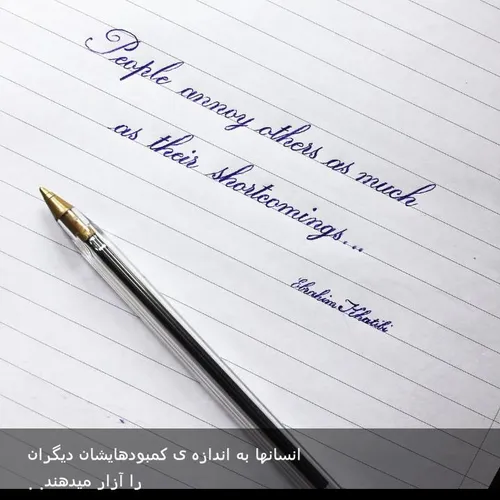 People annoy others as much
as their shortcomings...
Ebrahim Khatibi
انسانها به اندازه ی کمبودهایشان دیگران
را آزار میدهند..